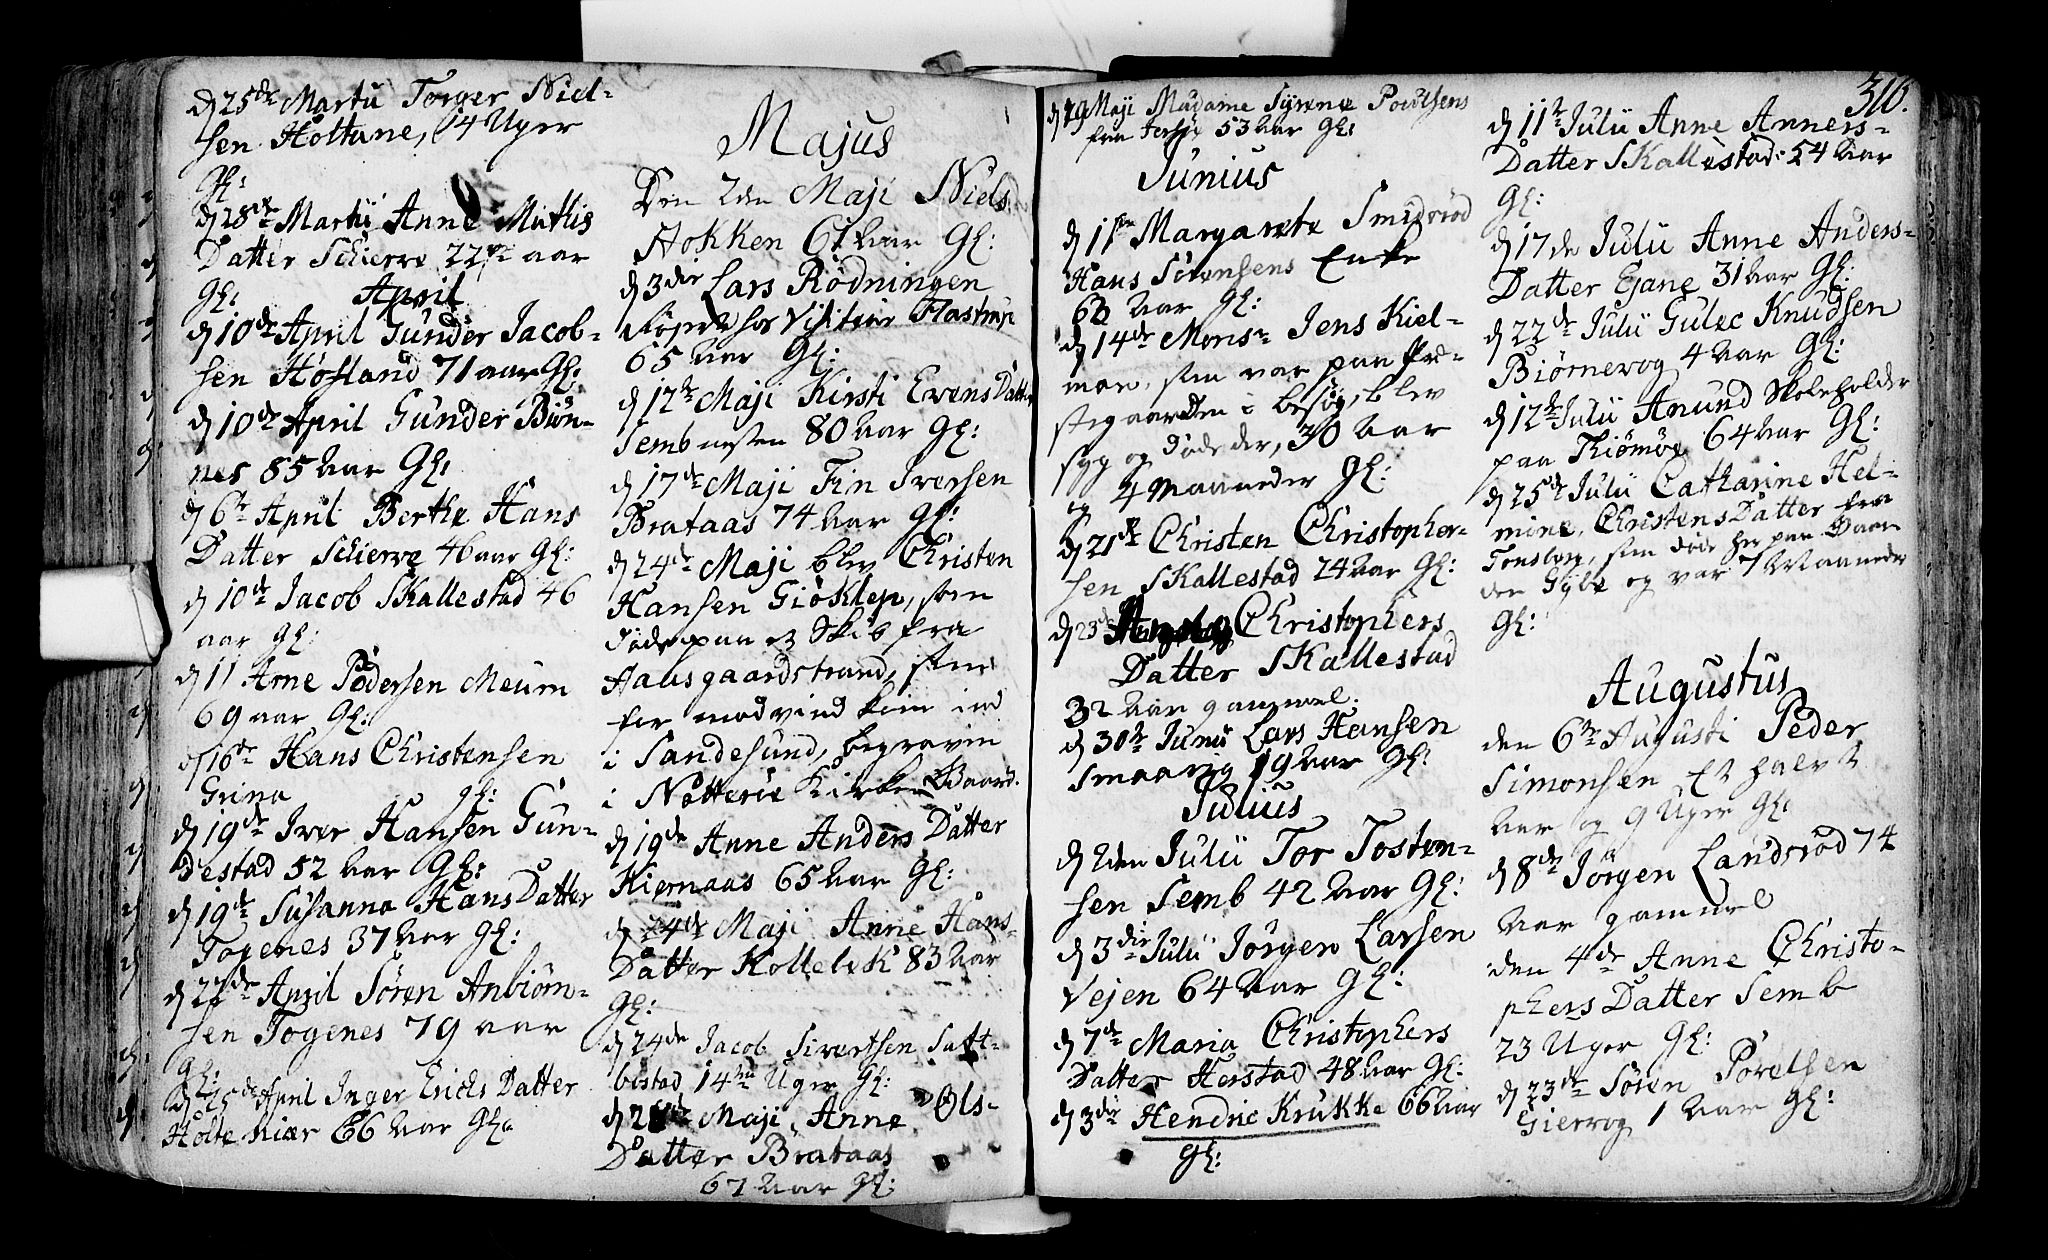 d 25de Martii Torger Niel-
sen Holtane, 14 Uger
gl:
d 28de Martii Anne Mathis
Datter Schierve 22 aar
gl:
April
d 10de April Gunder Jacob-
sen Hofland 71 aar gl:
d 10de April Gunder Biøn-
nes 85 aar gl:
d 6te April Berthe Hans
Datter Schierve 46 aar gl:
d 10de Jacob Skallestad 46
aar gl:
d 11 Arne Pedersen Meum
69 aar gl:
d 16de Hans Christensen
Grina gl:
d 19de Iver Hansen Gun-
destad 52 aar gl:
d 19de Susanna Hans Datter
Togenes 37 aar gl:
d 22de April Søren Anbiørn-
sen Togenes 79 aar
gl:
d 25de April Inger Erichs Datter
Holtekiær 66 aar gl:
Majus
Den 2den Maji Niels
Stokken 61 aar gl:
d 3die Lars Rødningen
hos Visiteur Flastrup
65 aar gl:
d 12te Maji Kirsti Evens Datter
Semb nesten 80 aar gl:
d 17de Maji Fin Iversen
Brataas 74 aar gl:
d 24de Maji blev Christen
Hansen Giøklep, som
døde paa et Skib fra
Aausgaardstrand, som
for modvind kom ind
i Sandesund, begraven
i Nøtterøe Kirke Gaard.
d 19de Anne Anders Datter
Kiernaas 65 aar gl:
d 24de Maji Anne Hans-
Datter Kollebek 83 aar
gl:
d 24de Jacob Sivertsen Satt-
bestad 14 Uger gl:
Maji Anne Ols-
Datter Brataas
67 aar gl:
316.
d 29 Maji Madame Syrene Poulsens
fra 53 aar gl:
Junius
d 11te Margarete Smidsrød
Hans Sørensens Enke
68 aar gl:
d 14de Mons: Jens Kiel-
man, som var paa Præ-
stegaarden i besøg, blev
syg og døde der, 30 aar
og 4 maaneder gl:
d 21de Christen Christopher-
sen Skallestad 24 aar gl:
d 23de Christophers
Datter Skallestad
32 aar gammel.
d 30te Junii Lars Hansen
Smaavig 19 aar gl:
Julius
d 2den Julii Tor Tosten-
sen Semb 42 aar gl:
d 3die Julii Jørgen Larsen
Vejen 64 aar gl:
d 7de Maria Christophers
Datter Herstad 48 aar gl:
d 3die Hendric Krukke 66 aar
gl:
d 11te Julii Anne Anners-
Datter Skallestad 54 aar
gl:
d 17de Julii Anne Anders-
Datter Ejane 31 aar gl:
d 22de Julii Gulec Knudsen
Biørnevog 4 aar gl:
d 12te Julii Anund Skoleholder
paa Tiømøe 64 aar gl:
d 25de Julii Catharine Hel-
mine, Christens Datter fra
Tønsberg, som døde her paa Gaar-
den og var 7 Maaneder
gl:
Augustus
den 6te Augusti Peder
Simonsen Et halvt
aar og 9 Uger gl:
d 8de Jørgen Landsrød 74
aar gammel
den 4de Anne Christo-
phers Datter Semb
23 Uger gl:
d 23de Søren Povelsen
Giervog 1 aar gl: